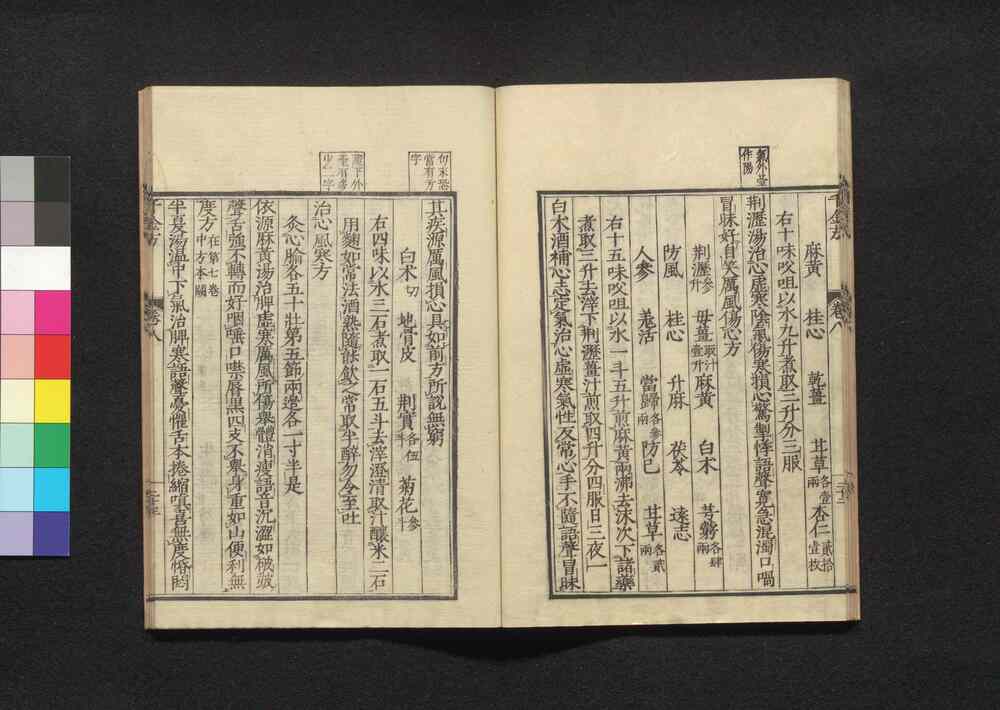 氣外當
作陽
千金方
卷八
麻黃 桂心 乾薑 甘草各壹兩 杏仁貳拾壹枚
右十味㕮咀以水九升煮取三升分三服
荆瀝湯治心虛寒陰氣傷寒損心驚掣悸語聲寬急混濁口喎
冒昧好自笑厲風傷心方
荆瀝參升 母薑取汁壹升 麻黃 白朮 芎藭各肆兩
防風 桂心 升麻 茯苓 遠志
人參 羌活 當歸各參兩 防己 甘草各貳兩
右十五味㕮咀以水一斗五升煎麻黃兩沸去沫次下諸藥
煮取三升去滓下荆瀝薑汁煎取四升分四服日三夜一
白朮酒補心志定氣治心虛寒氣性反常心手不隨語聲冒昧
句末恐
當有方
字
遣下外
臺有多
少二字
其疾源厲風損心具如前方所說無窮
白朮切 地骨皮 荆實各伍斗 菊花參斗
右四味以水三石煮取一石五斗去滓澄清取汁釀米二石
用麴如常法酒熟隨能飮之常取半醉勿令至吐
治心風寒方
灸心腧各五十壯第五節兩邊各一寸半是
依源麻黃湯治脾虛寒厲風所傷舉體消瘦語音沉澀如破𡔷
聲舌強不轉而好咽唾口噤脣黑四支不舉身重如山便利無
度方在第七卷中方本闕
半夏湯溫中下氣治脾寒語聲憂懼舌本捲縮嗔喜無度惛悶
千金方
卷八